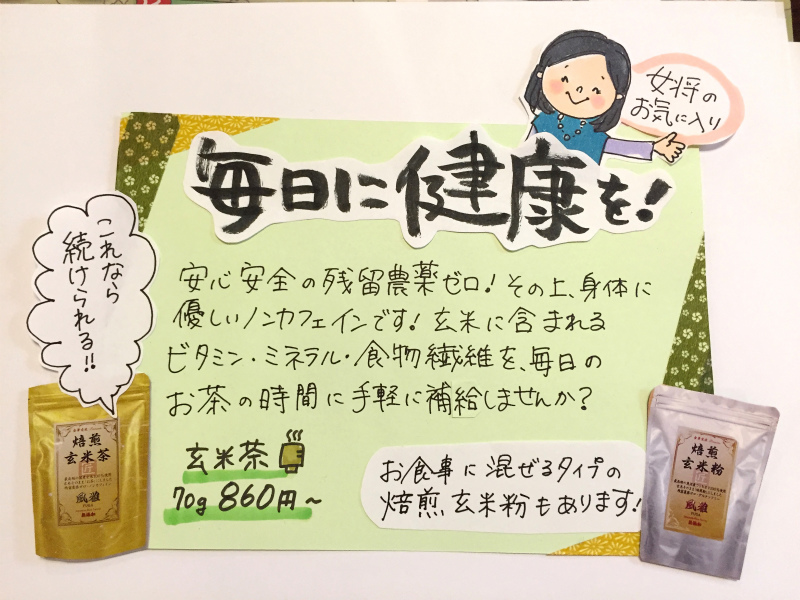 女将の
お気に入り
毎日に健康を!
これなら
続けられる!!
安心安全の残留農薬ゼロ!その上、身体に
優しいノンカフェインです!玄米に含まれる
ビタミン・ミネラル・食物繊維を、毎日の
お茶の時間に手軽に補給しませんか?
玄米茶
70g 860円~
お食事に混ぜるタイプの
焙煎玄米粉もあります!
焙煎
玄米茶
匠
風雅
焙煎
玄米粉
風雅